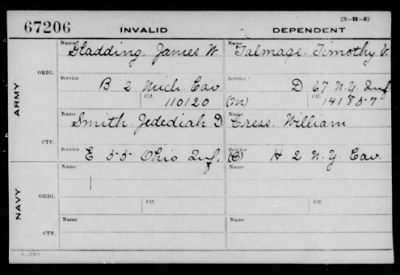 (3-H-3)
67206 INVALID DEPENDENT
ARMY
ORIG.
Name Gladding, James W. Name Talmage, Timothy V.
Service B 2 Mich Cav Service D 67 N.Y. Inf.
Ctf. 110120 (M) Ctf. 141857
CTF.
Name Smith, Jedediah D Name Cress, William
Service E 55 Ohio Inf. Service (C) H 2 N.Y. Cav.
NAVY
ORIG.
Name Name
Service Ctf. Service Ctf.
CTF.
Name Name
Service Service